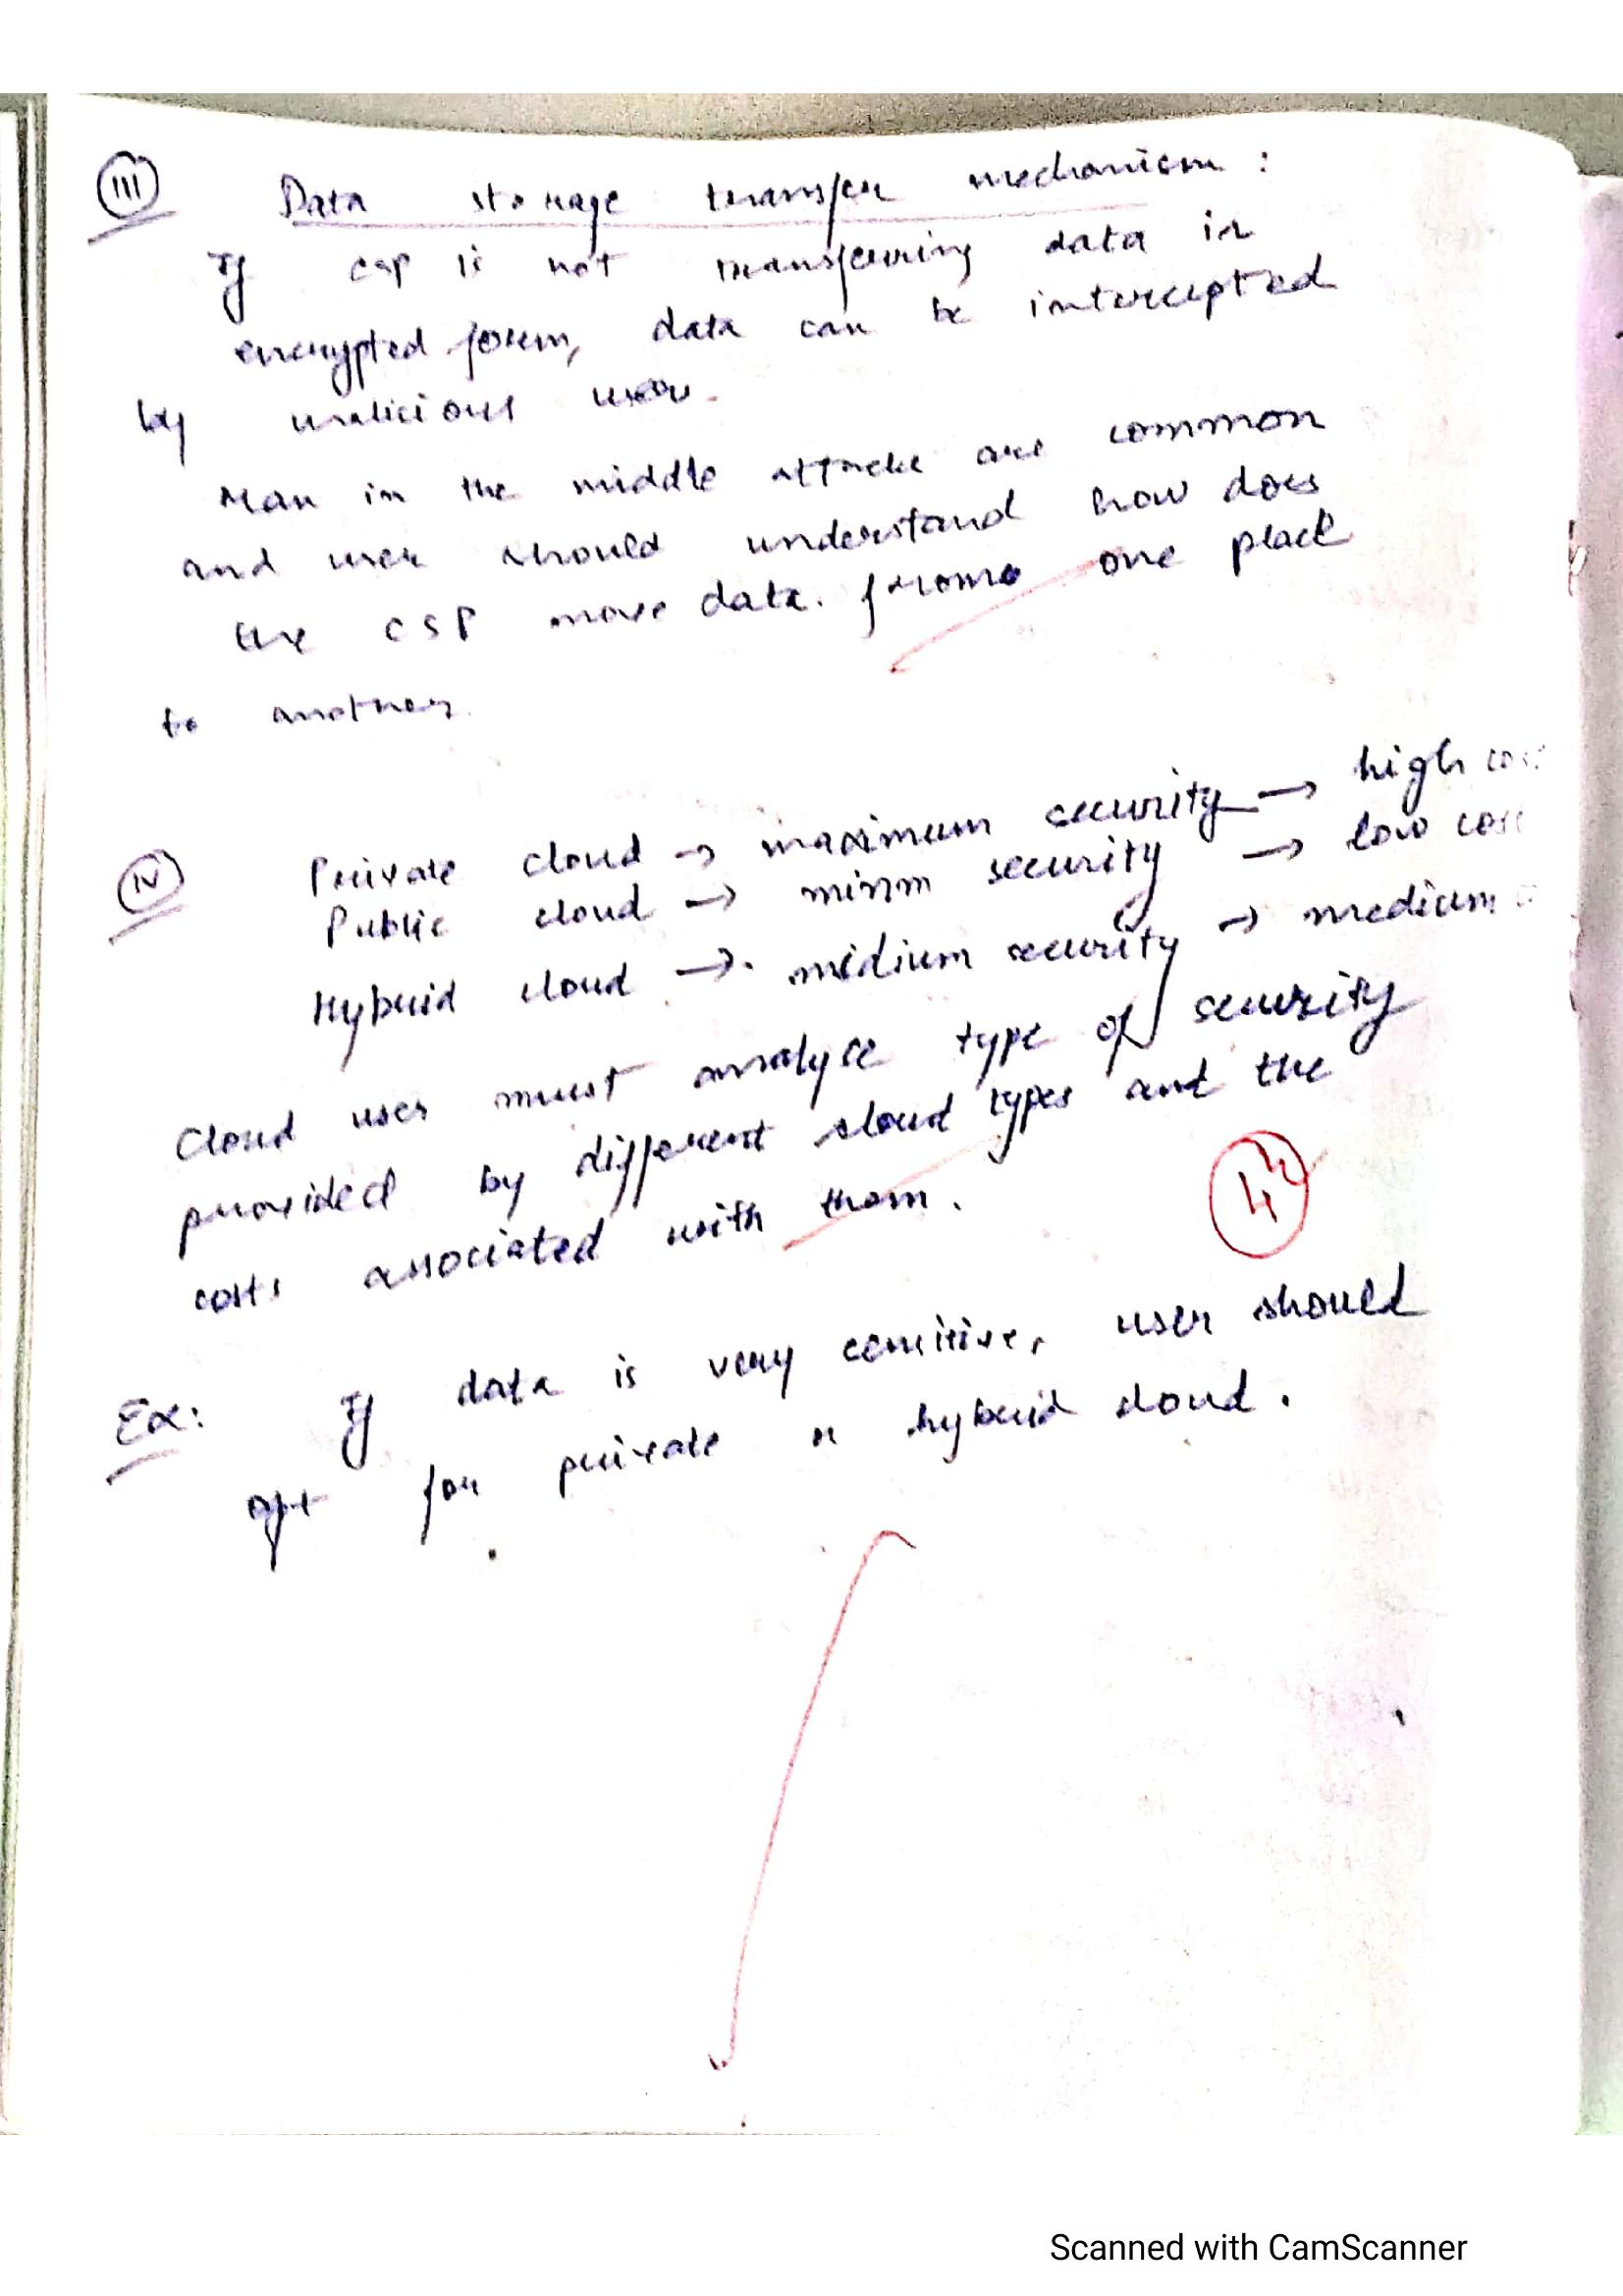 III Data storage transfer mechanism :
If csp is not transferring data in
encrypted form, data can be intercepted
by malicious user.
Man in the middle attacks are common
and user should understand how does
the CSP move data. from one place
to another.
IV Private cloud → maximum security → high cost
Public cloud → minm security → low cost
Hybrid cloud → medium security → medium
Cloud user must analyse type of security
provided by different cloud types and the
costs associated with them.
4 1/2
Ex: If data is very censitive, user should
opt for private or hybrid cloud.
Scanned with CamScanner